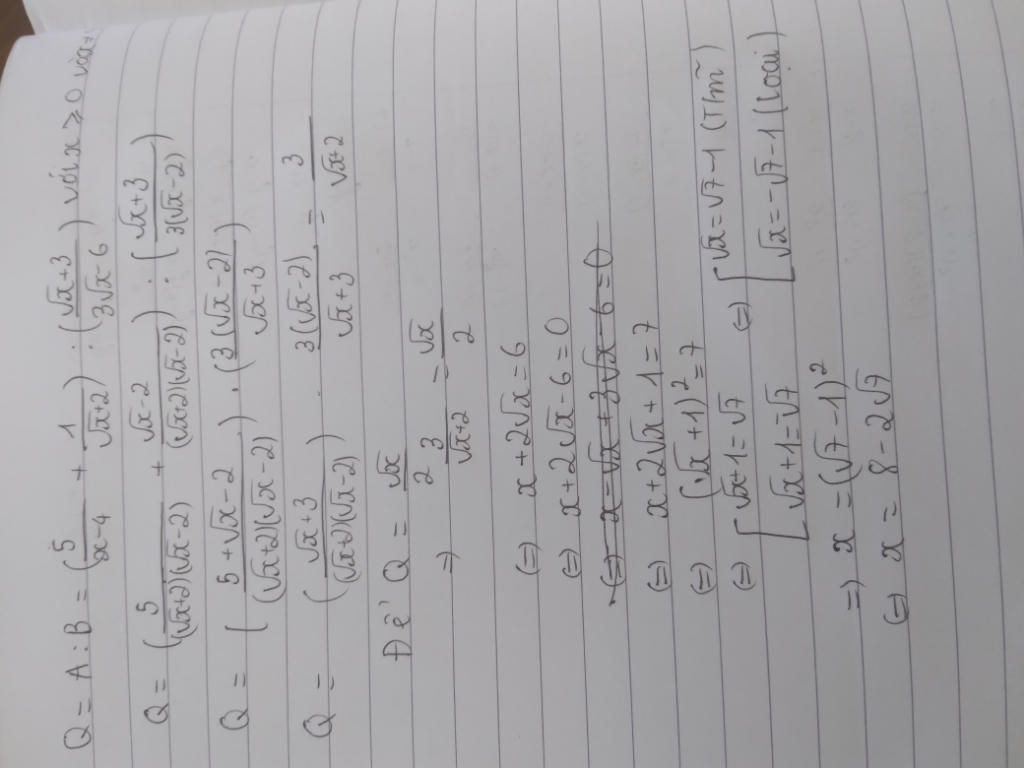 Q = A : B = (5/(x-4) + 1/(√x+2)) : ((√x+3)/(3√x-6)) với x ≥ 0 và x
Q = (5/((√x+2)(√x-2)) + (√x-2)/((√x+2)(√x-2))) : ((√x+3)/(3(√x-2)))
Q = ((5+√x-2)/((√x+2)(√x-2))) . (3(√x-2)/(√x+3))
Q = ((√x+3)/((√x+2)(√x-2))) . 3(√x-2)/(√x+3) = 3/(√x+2)
Để Q = √x/2
=> 3/(√x+2) = √x/2
(=) x+2√x = 6
(=) x+2√x-6=0
(=) x-√x+3√x-6=0
(=) x+2√x+1=7
(=) (√x+1)²=7
(=) [√x+1=√7 (=) [√x=√7-1 (T/m)
[√x+1=-√7 [√x=-√7-1 (loại)
=) x = (√7-1)²
(=) x = 8-2√7